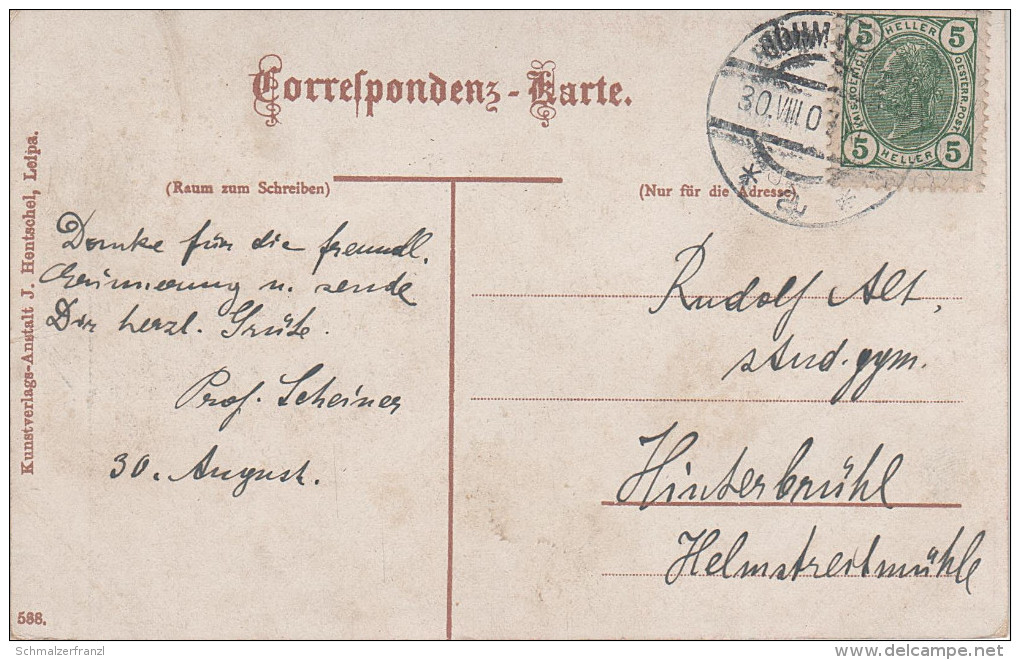 Correspondenz-Karte.
(Raum zum Schreiben)
(Nur für die Adresse)
Kunstverlags-Anstalt J. Hentschel, Leipa.
Danke für die freundl.
Erinnerung u. sende
Dir herzl. Grüße.
Prof. Scheiner
30. August.
Rudolf Alt,
stud. gym.
Hinterbrühl
Helmstreitmühle
BÖHM
30.VIII.0
5 HELLER 5
OESTERR. POST
5 HELLER 5
588.
Schmalzerfranzl
delcampe.net